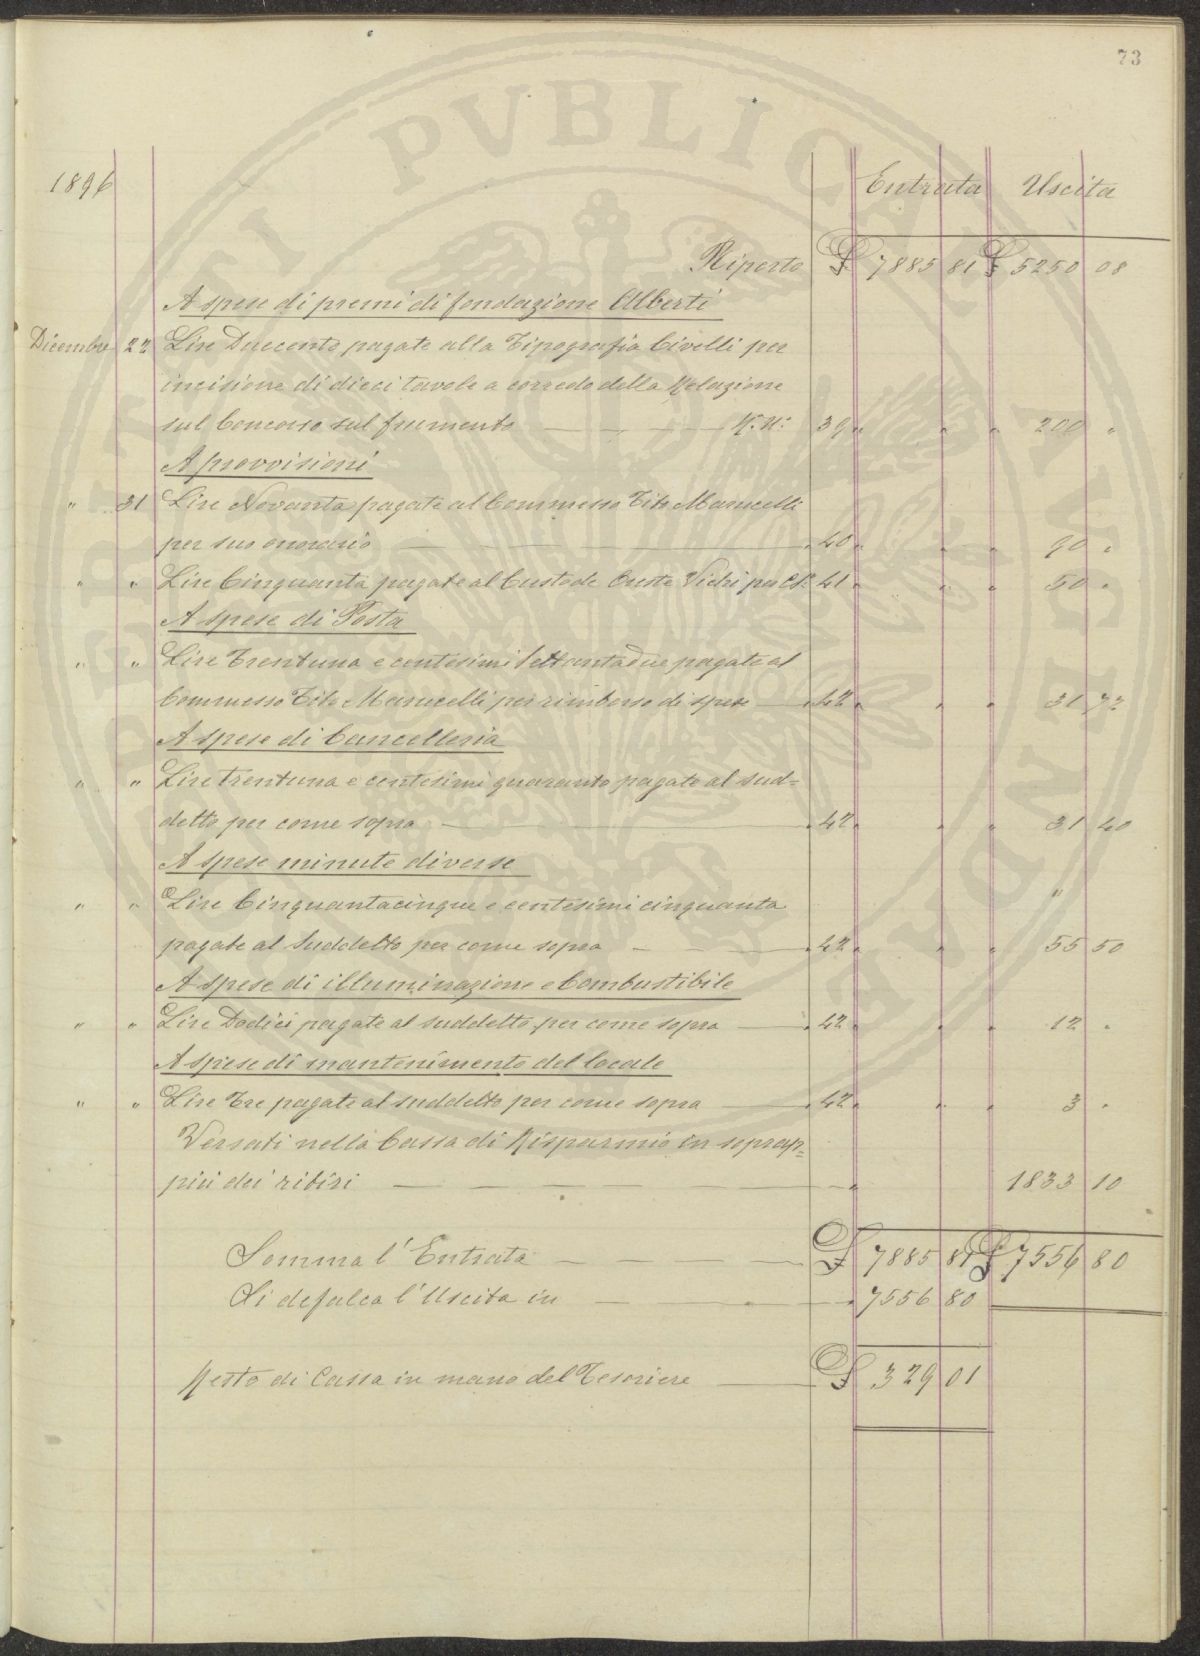 73
1896 Entrata Uscita
Riporto £ 7885 81 £ 5250 08
A spese di premi di fondazione Alberti
Dicembre 22 Lire Duecento pagate alla Tipografia Civelli per
incisione di dieci tavole a corredo della Relazione
sul Concorso sul frumento — — — M. N: 39 " " " 200 "
A provvisioni
" 31 Lire Novanta pagate al Commesso Tito Marucelli
per suo onorario — " 40 " " " 90 "
" " Lire Cinquanta pagate al Custode Oreste Vichi per Cs. 41 " " " 50 "
A spese di Posta
" " Lire Trentuna e centesimi Settantadue pagate al
Commesso Tito Marucelli per rimborso di spese — " 42 " " " 31 72
A spese di Cancelleria
" " Lire trentuna e centesimi quaranta pagate al sud=
detto per come sopra — " 42 " " " 31 40
A spese minute diverse
" " Lire Cinquantacinque e centesimi cinquanta "
pagate al Suddetto per come sopra — " 42 " " " 55 50
A spese di illuminazione e Combustibile
" " Lire Dodici pagate al suddetto per come sopra — " 42 " " " 12 "
A spese di mantenimento del locale
" " Lire Tre pagate al suddetto per come sopra — " 42 " " " 3 "
Versati nella Cassa di Risparmio in soprap=
più dei ritiri — — — — " 1833 10
Somma l'Entrata — — — £ 7885 81 £ 7556 80
Si defalca l'Uscita in — — — " 7556 80
Resto di Cassa in mano del Tesoriere — £ 329 01